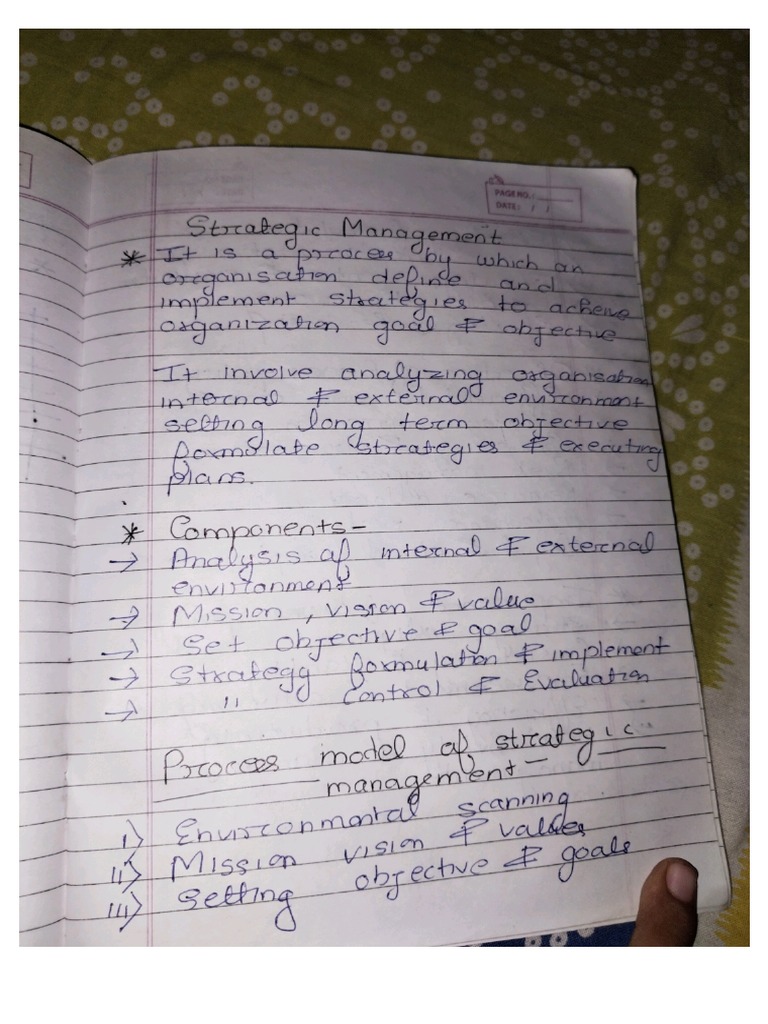 PAGE NO.:
DATE: / /
Strategic Management
* It is a process by which an
organisation define and
implement strategies to acheive
organization goal & objective
It involve analyzing organisation
internal & external environment
setting long term objective
formulate strategies & executing
plans.
* Components -
→ Analysis of internal & external
environment
→ Mission, vision & value
→ Set objective & goal
→ Strategy formulation & implement
→ " Control & Evaluation
Process model of strategic
management -
i) Environmental scanning
ii) Mission vision & values
iii) Setting objective & goals